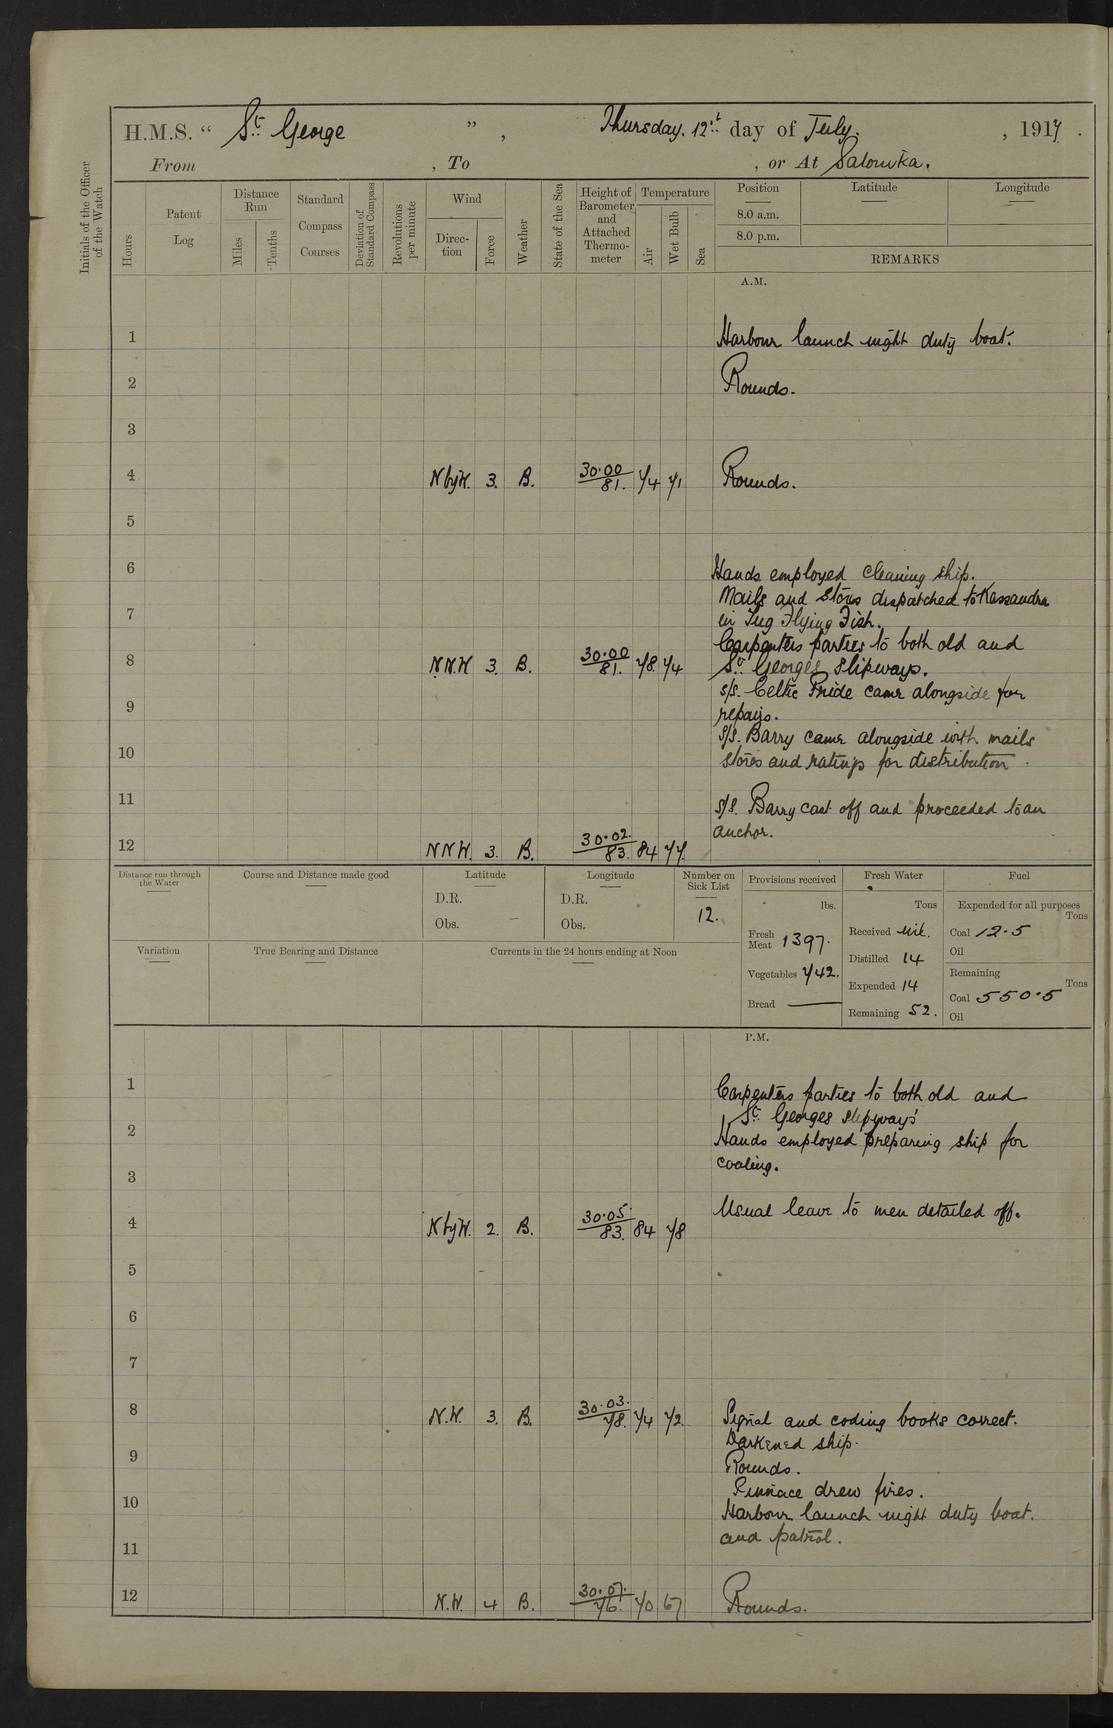 H.M.S. “ St. George ” , Thursday. 12th day of July. , 1917 .
From , To , or At Salonika.
Initials of the Officer of the Watch
Hours
Patent Log
Distance Run
Miles
Tenths
Standard Compass Courses
Deviation of Standard Compass
Revolutions per minute
Wind
Direc-tion
Force
Weather
State of the Sea
Height of Barometer and Attached Thermo-meter
Temperature
Air
Wet Bulb
Sea
Position Latitude Longitude
8.0 a.m.
8.0 p.m.
REMARKS
A.M.
1 Harbour launch night duty boat.
2 Rounds.
3
4 N by W. 3. B. 30.00/81. 74 71 Rounds.
5
6 Hands employed cleaning ship.
Mails and Stores dispatched to Kassandra
7 in Tug Flying Fish.
Carpenters parties to both old and
8 N.N.W 3. B. 30.00/81. 78 74 St. Georges Slipways.
s/s. Celtic Pride came alongside for
9 repairs.
s/s. Barry came alongside with mails
10 stores and ratings for distribution.
11 s/s. Barry cast off and proceeded to an
anchor.
12 NNW. 3. B. 30.02./83. 84 77.
Distance run through the Water
Course and Distance made good
Latitude
D.R.
Obs. –
Longitude
D.R.
Obs.
Number on Sick List
12.
Provisions received
lbs.
Fresh Meat 1397.
Vegetables 742.
Bread —
Fresh Water
Tons
Received nil.
Distilled 14
Expended 14
Remaining 52.
Fuel
Expended for all purposes
Tons
Coal 12.5
Oil
Remaining
Tons
Coal 550.5
Oil
Variation
True Bearing and Distance
Currents in the 24 hours ending at Noon
P.M.
1 Carpenters parties to both old and
St. Georges slipways
2 Hands employed preparing ship for
coaling.
3
4 N by W. 2. B. 30.05/83. 84 78 Usual leave to men detailed off.
5
6
7
8 N.W. 3. B. 30.03./78. 74 72 Signal and coding books correct.
Darkened ship.
9 Rounds.
Pinnace drew fires.
10 Harbour launch night duty boat.
and patrol.
11
12 N.W. 4 B. 30.07./76. 70 67 Rounds.